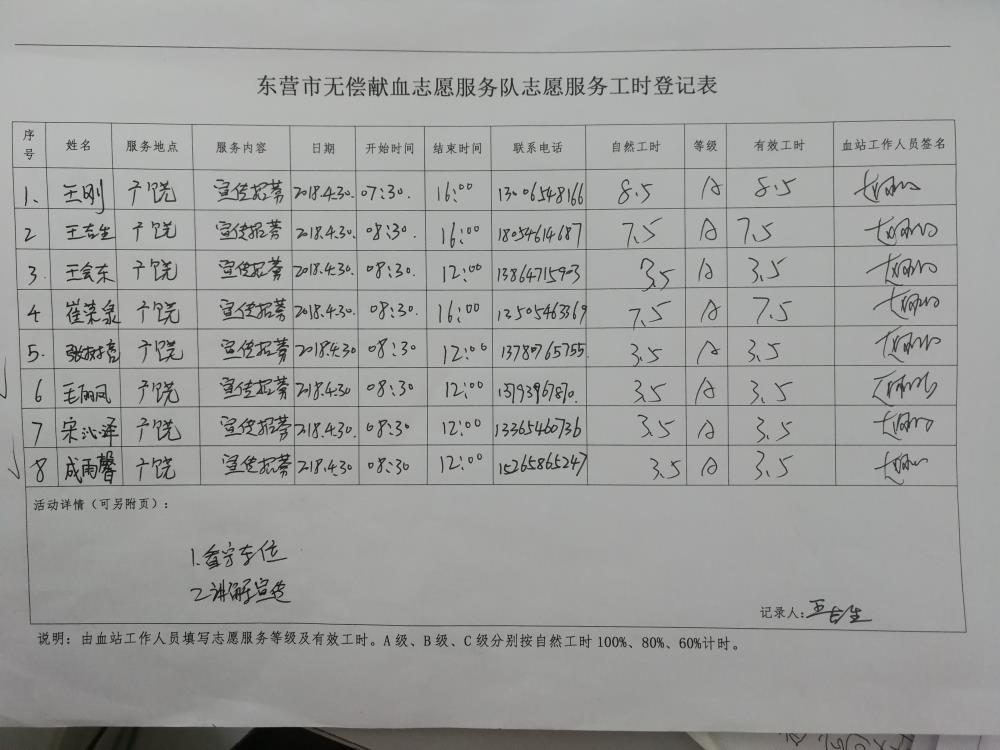 东营市无偿献血志愿服务队志愿服务工时登记表
序号 姓名 服务地点 服务内容 日期 开始时间 结束时间 联系电话 自然工时 等级 有效工时 血站工作人员签名
1. 王刚 广饶 宣传招募 2018.4.30. 07:30. 16:00 13006548166 8.5 A 8.5
2 王吉生 广饶 宣传招募 2018.4.30. 08:30. 16:00 18054614687 7.5 A 7.5
3. 王会东 广饶 宣传招募 2018.4.30. 08:30. 12:00 13864715903 3.5 A 3.5
4 崔荣泉 广饶 宣传招募 2018.4.30. 08:30. 16:00 13505463369 7.5 A 7.5
5. 张树亮 广饶 宣传招募 2018.4.30 08:30 12:00 13780765755. 3.5 A 3.5
6 王丽凤 广饶 宣传招募 2018.4.30 08:30 12:00 13793967870. 3.5 A 3.5
7 宋沁泽 广饶 宣传招募 2018.4.30. 08:30 12:00 13365460736 3.5 A 3.5
8 成雨馨 广饶 宣传招募 218.4.30 08:30 12:00 15265865247 3.5 A 3.5
活动详情（可另附页）：
1.看守车位
2.讲解宣传
记录人:王吉生
说明：由血站工作人员填写志愿服务等级及有效工时。A 级、B 级、C 级分别按自然工时 100%、80%、60%计时。